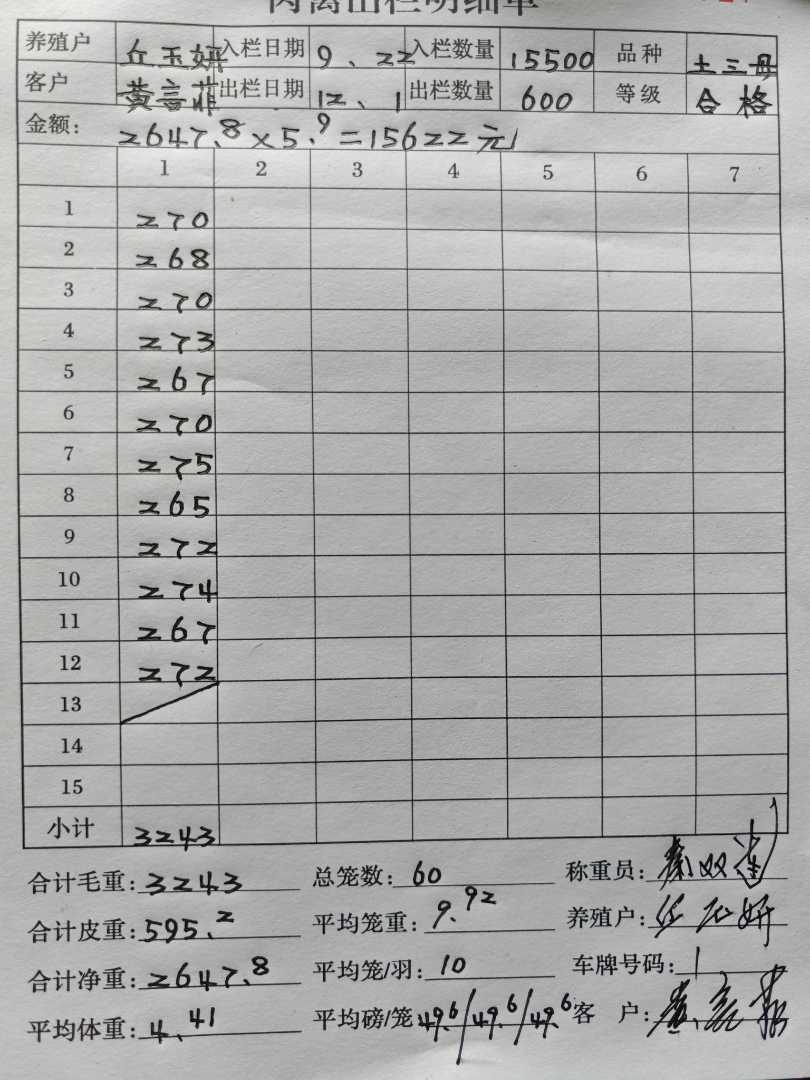 肉禽出栏明细单
养殖户 丘玉妍 入栏日期 9、22 入栏数量 15500 品种 土三母
客户 黄言菲 出栏日期 12、1 出栏数量 600 等级 合格
金额: 2647.8×5.9=15622元
1 2 3 4 5 6 7
1 270
2 268
3 270
4 273
5 267
6 270
7 275
8 265
9 272
10 274
11 267
12 272
13
14
15
小计 3243
合计毛重: 3243 总笼数: 60 称重员:
合计皮重: 595.2 平均笼重: 9.92 养殖户:
合计净重: 2647.8 平均笼/羽: 10 车牌号码: 1
平均体重: 4.41 平均磅/笼: 49.6/49.6/49.6 客户: